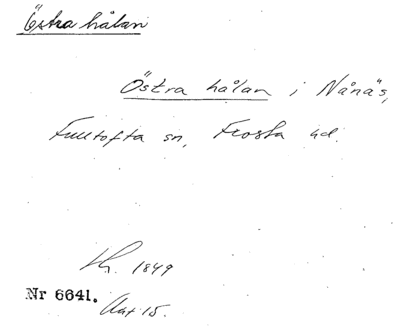 Östra hålan
Östra hålan i Nånäs,
Fulltofta sn, Frosta hd.
1849
Nr 6641.
15.